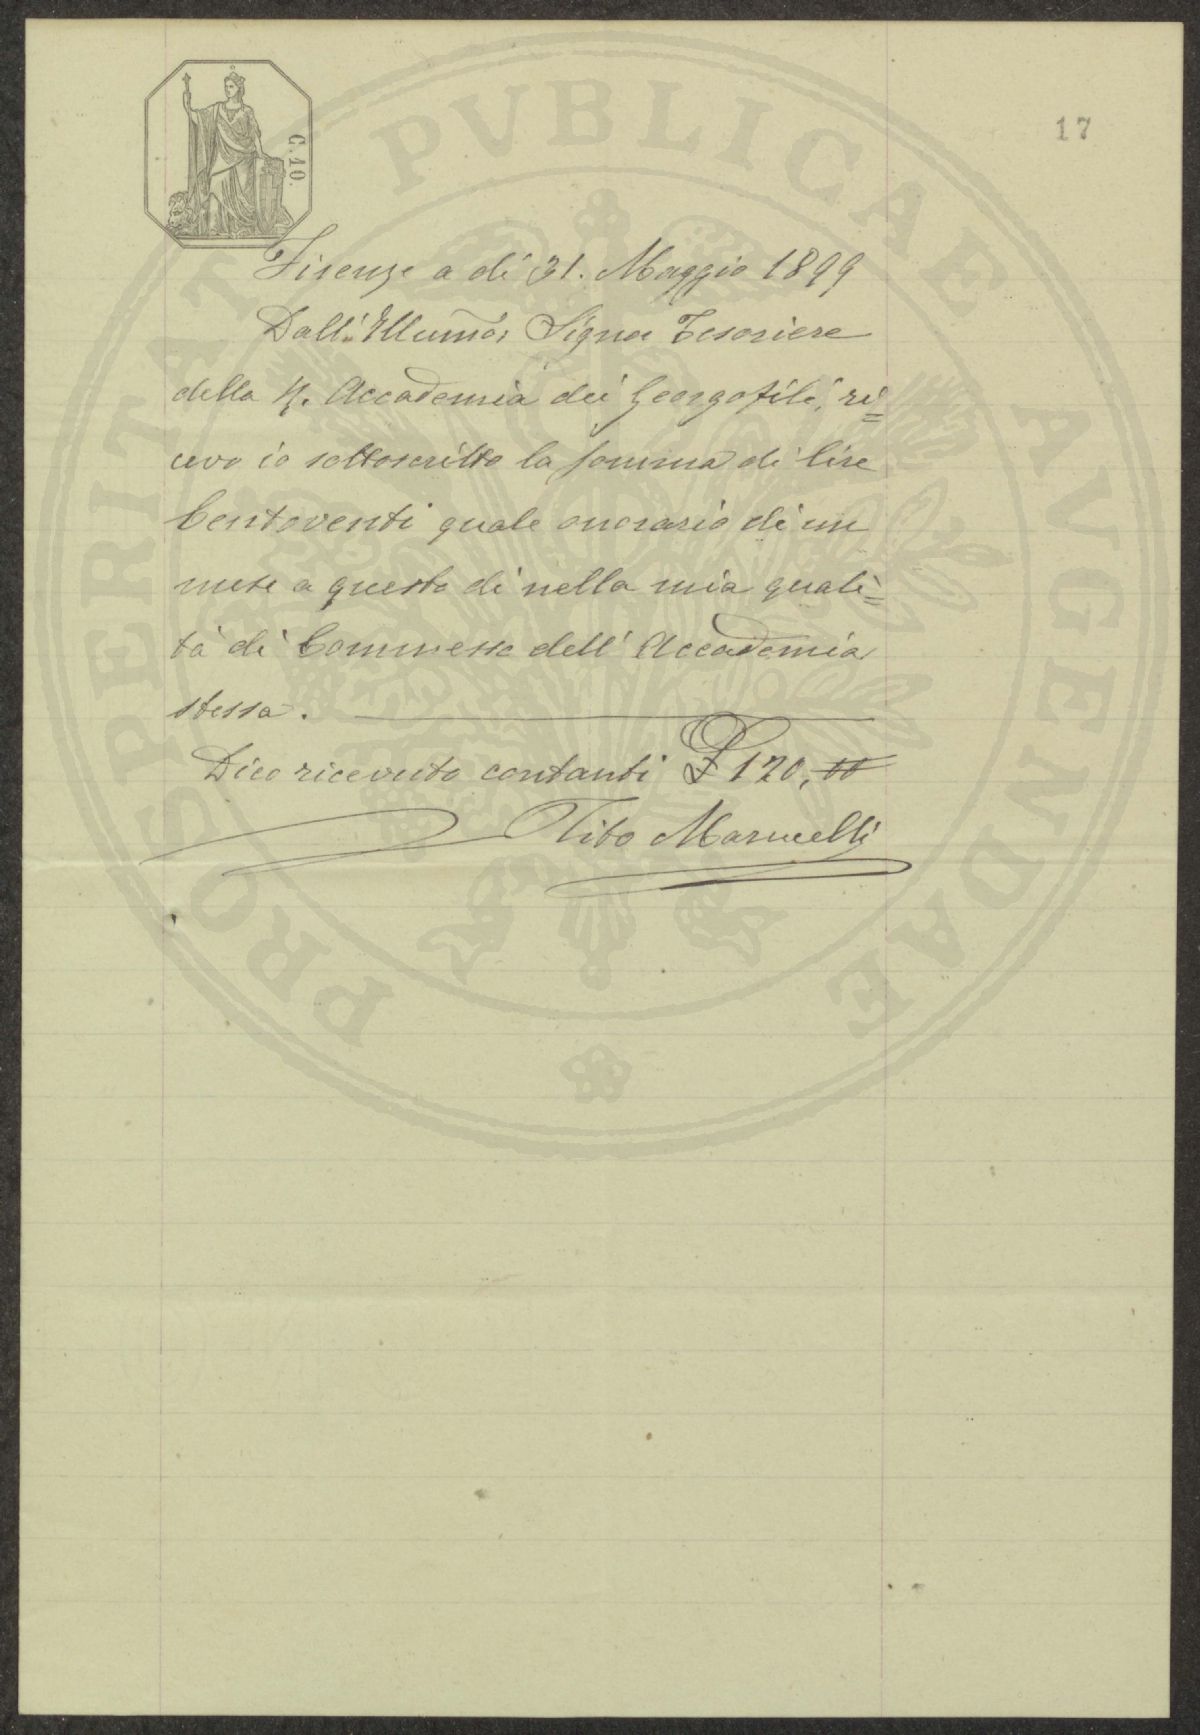 C. 10.
17
Firenze a dì 31. Maggio 1899
Dall' Illumo, Signor Tesoriere
della R. Accademia dei Georgofili, ri=
cevo io sottoscritto la somma di lire
Centoventi quale onorario di un
mese a questo dì nella mia quali=
tà di Commesso dell' Accademia
stessa.
Dico ricevuto contanti £ 120,00
Tito Marucelli
PROSPERITATI PVBLICAE AVGENDAE